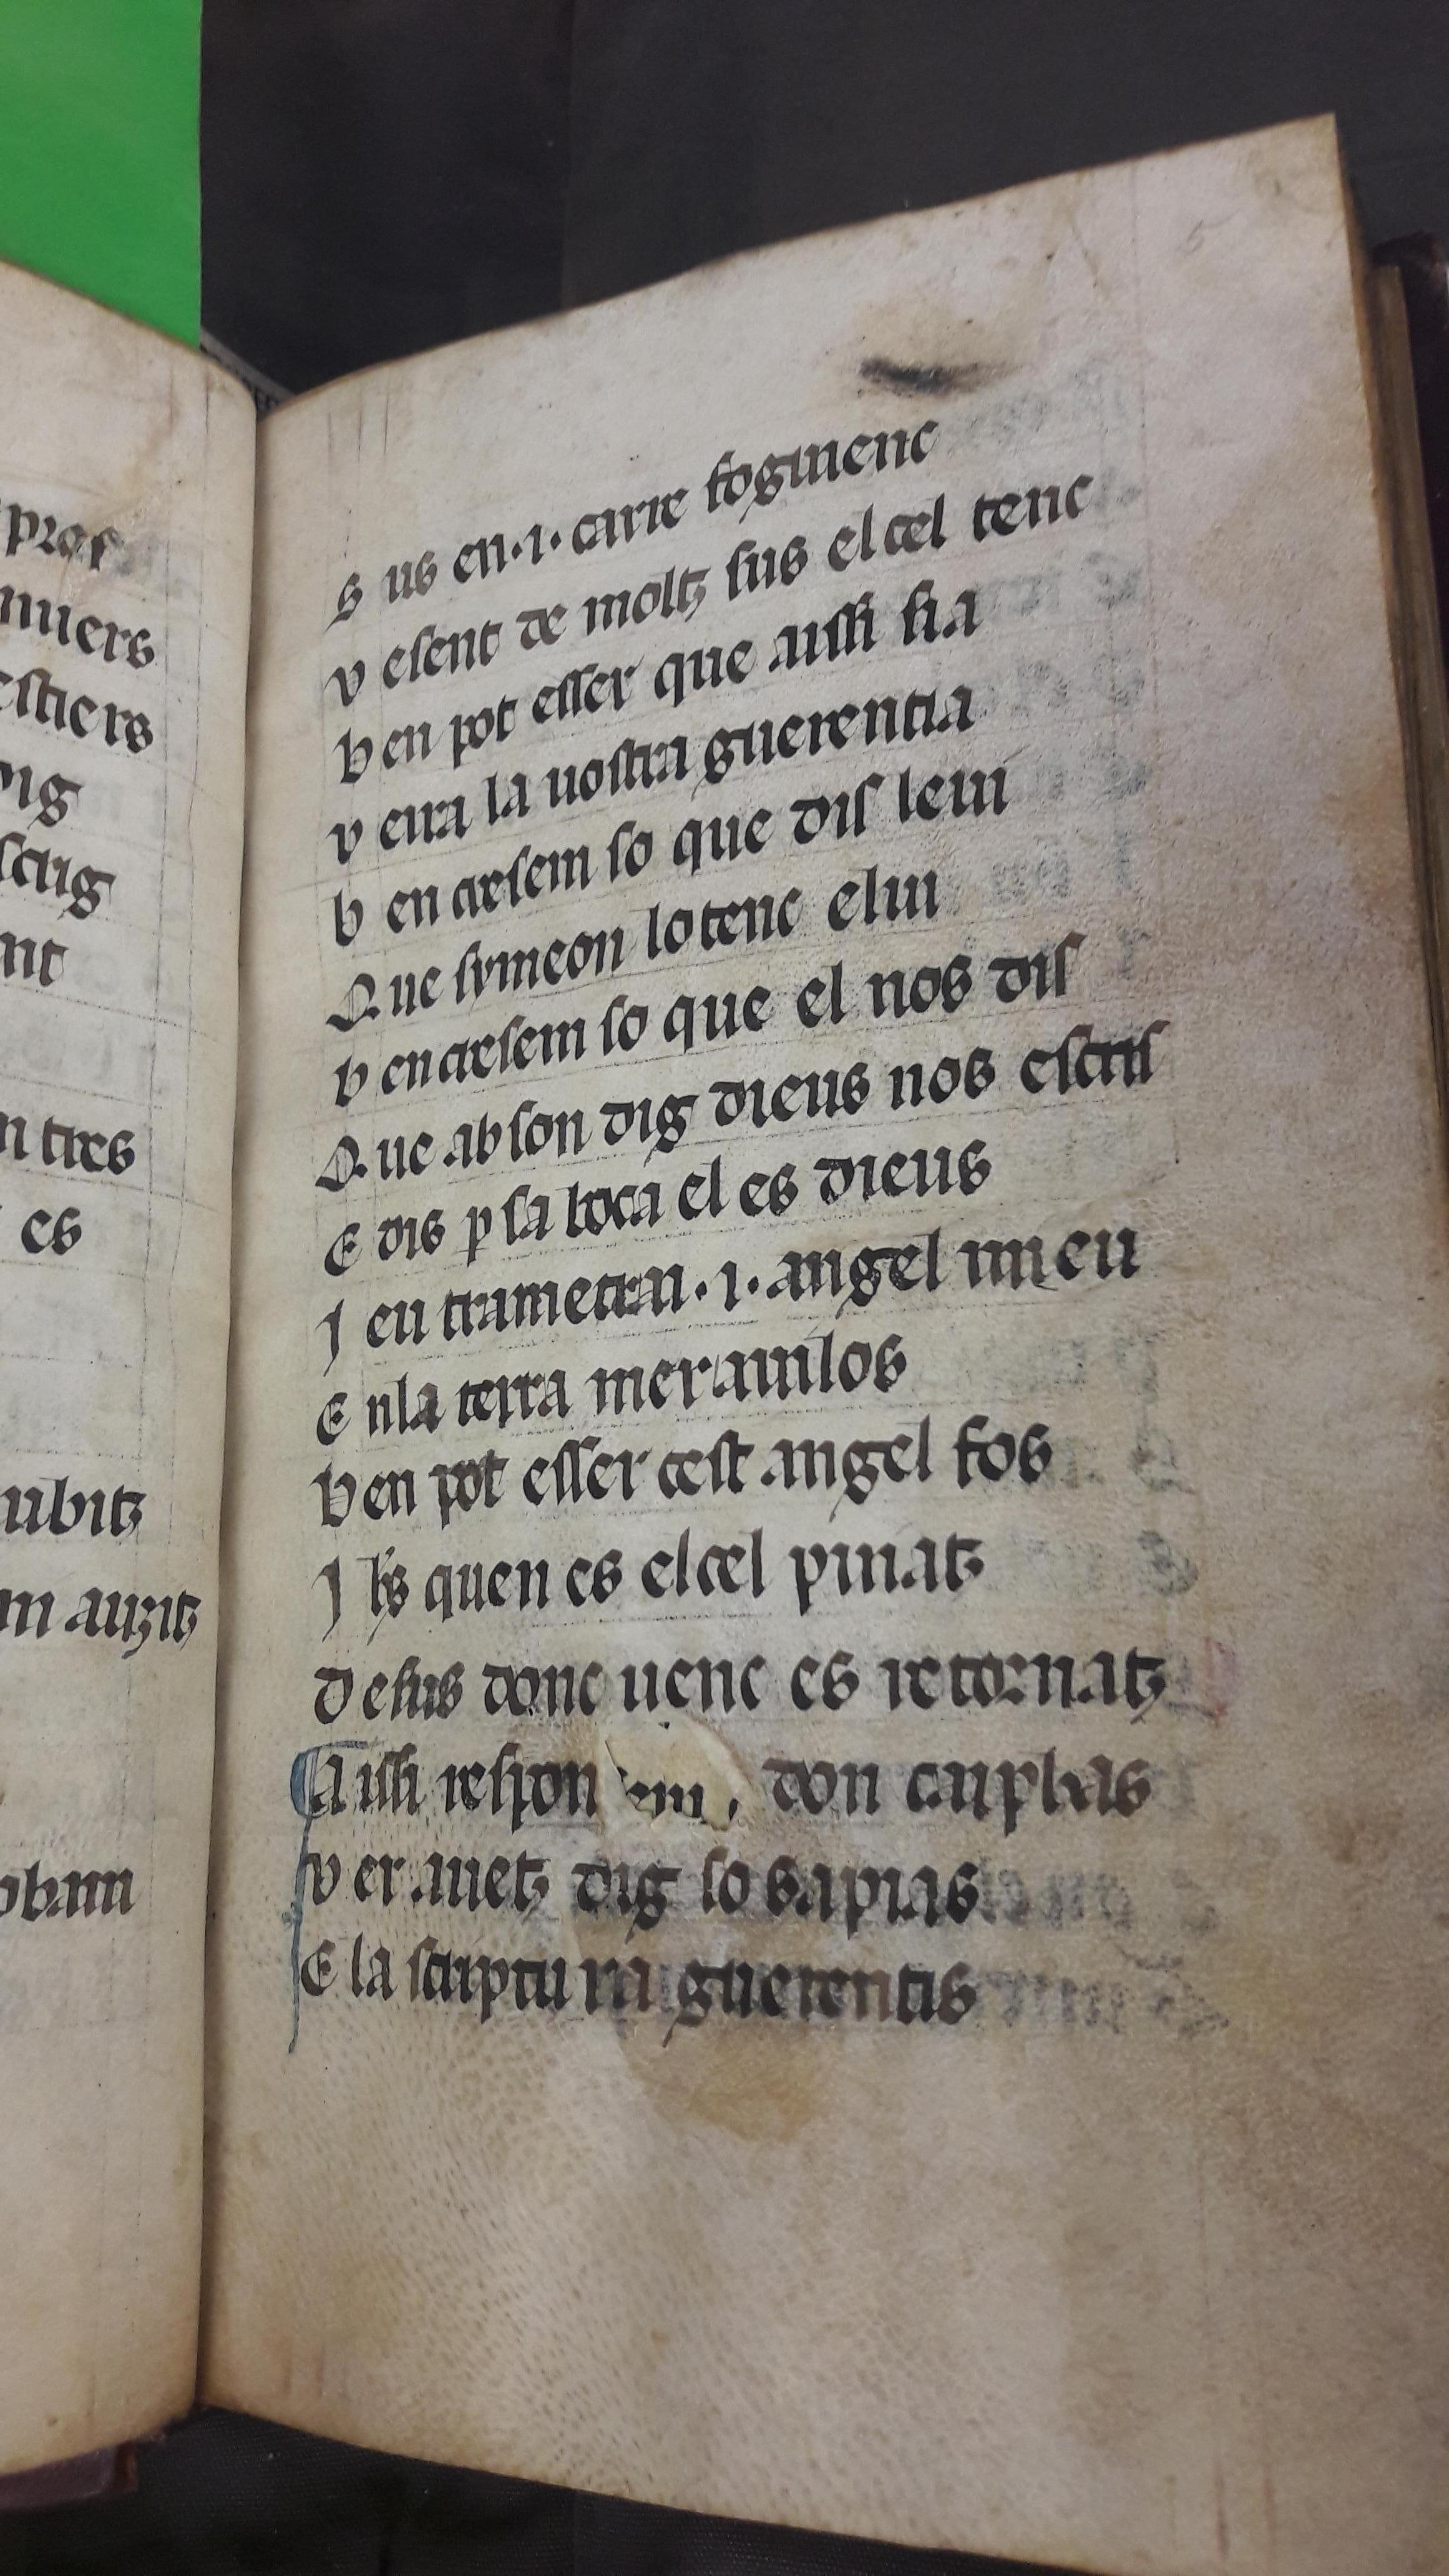 pres
uiers
estiers
oig
scrig
nt
n tres
es
ubitz
m auzitz
obam
S us en .i. carre fog uenc
V esent de moltz sus el cel tenc
B en pot esser que aissi sia
V eira la uostra guerentia
B en cresem so que dis leui
Q ue symeon lo tenc e lui
B en cresem so que el nos dis
Q ue ab son dig dieus nos escris
E dis p sa boca el es dieus
I eu trametrai .i. angel mieu
E n la terra merauilos
B en pot esser cest angel fos
I hs quen es el cel puiatz
D esus donc uenc es retornatz
A issi respon don cayphas
V er auetz dig so sapias
E la scriptura guerentis